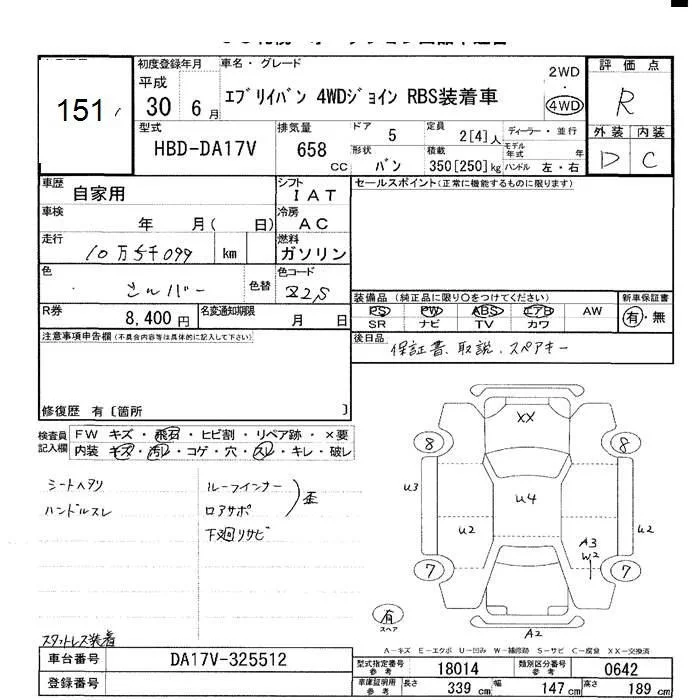 151
初度登録年月
平成
30 6月
車名・グレード
エブリイバン 4WDジョイン RBS装着車
2WD
4WD
評価点
R
外装 内装
D C
型式
HBD-DA17V
排気量
658 CC
ドア 5
形状 バン
定員 2[4]人
積載 350[250]kg
ディーラー・並行
モデル年式 年
ハンドル 左・右
車歴 自家用
車検 年 月( 日)
走行 10万5千099 km
色 シルバー 色替
シフト IAT
冷房 AC
燃料 ガソリン
色コード Z2S
R券 8,400円
名変通知期限 月 日
セールスポイント(正常に機能するものに限ります)
装備品 (純正品に限り〇をつけてください)
PS PW ABS エアB AW
SR ナビ TV カワ
新車保証書
有・無
後日品
保証書、取説、スペアキー
注意事項申告欄(不具合内容等は具体的に記入して下さい)
修復歴 有 [箇所 ]
検査員記入欄
FW キズ・飛石・ヒビ割・リペア跡・×要
内装 キズ・汚レ・コゲ・穴・スレ・キレ・破レ
シートヘタリ
ハンドルスレ
ルーフインナー
ロアサポ
歪
下廻りサビ
スタットレス装着
XX
8 8
U3 U4
U2 U2
A3
W2
7 7
有
スペア
A2
A-キズ E-エクボ U-凹み W-補修跡 S-サビ C-腐食 XX-交換済
車台番号 DA17V-325512
登録番号
型式指定番号 参考 18014
類別区分番号 参考 0642
車庫証明用 参考 長さ 339 cm 幅 147 cm 高さ 189 cm